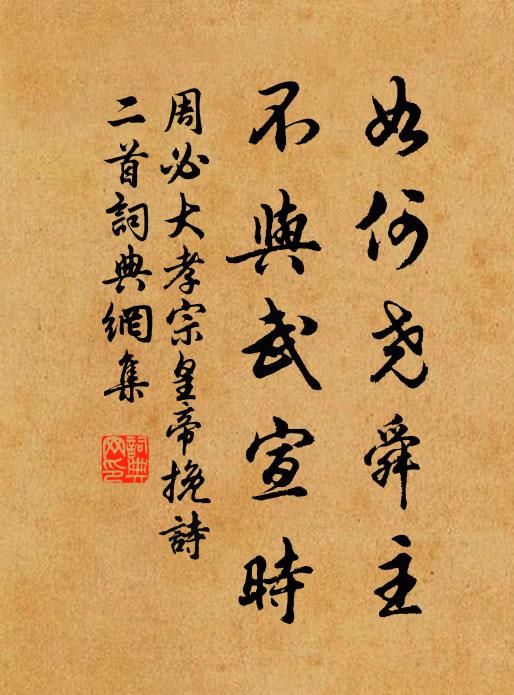 如何堯舜主
不與武宣時
周必大孝宗皇帝挽詩
二首詞典網集
詞典网印